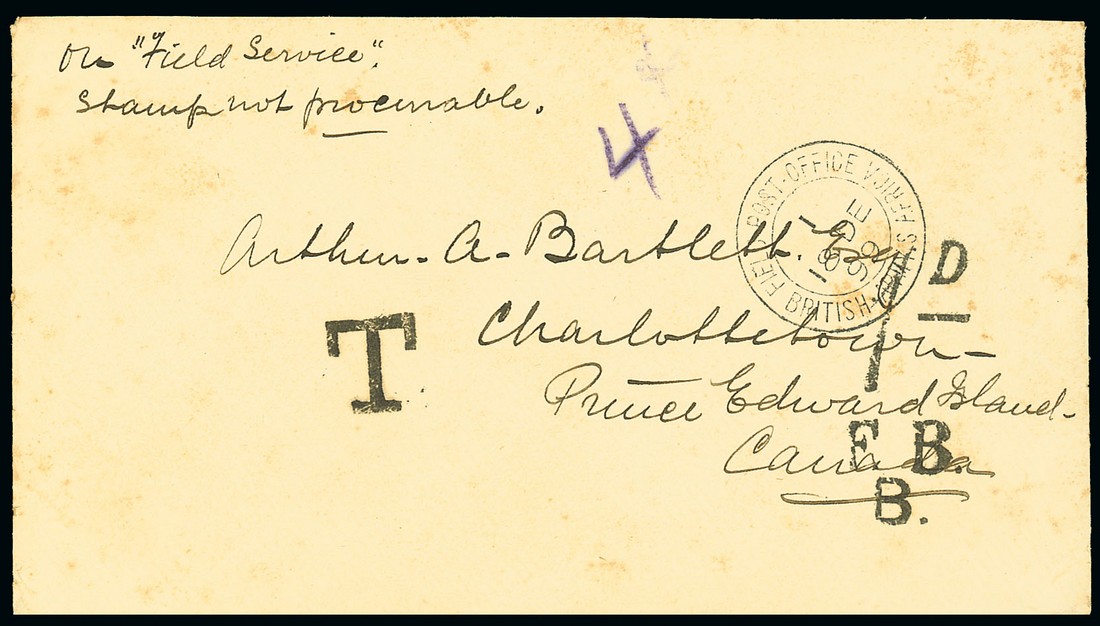 On "Field Service".
Stamp not procurrable.
4
FIELD POST-OFFICE BRITISH-ARMY S AFRICA
DE
99
T
1D
F.B.
B.
Arthur. A. Bartlett. Esq
Charlottetown-
Prince Edward Island-
Canada